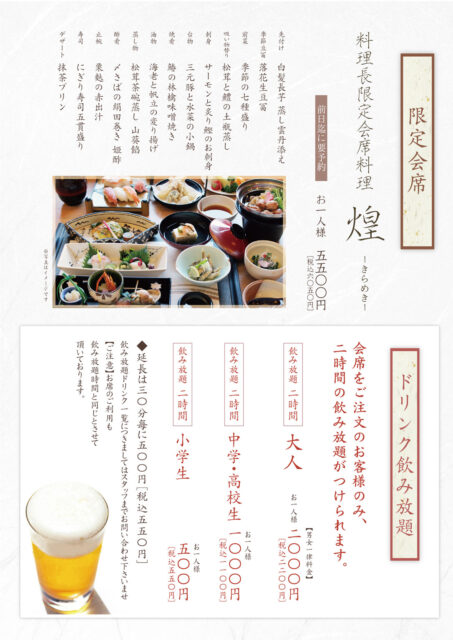 限定会席
料理長限定会席料理
煌
ーきらめきー
前日迄に要予約
お一人様 五五〇〇円
[税込六〇五〇円]
先付け 白髪長芋 蒸し雲丹添え
季節豆富 落花生豆富
前菜 季節の七種盛り
吸い物替り 松茸と鱧の土瓶蒸し
刺身 サーモンと炙り鰹のお刺身
台物 三元豚と水菜の小鍋
焼肴 鰆の林檎味噌焼き
油物 海老と帆立の変り揚げ
蒸し物 松茸茶碗蒸し 山葵餡
酢肴 〆さばの絹田巻き 姫酢
止椀 粟麩の赤出汁
寿司 にぎり寿司五貫盛り
デザート 抹茶プリン
※写真はイメージです
ドリンク飲み放題
会席をご注文のお客様のみ、
二時間の飲み放題がつけられます。
飲み放題 二時間
大人
【男女一律料金】
お一人様 二〇〇〇円
[税込二二〇〇円]
飲み放題 二時間
中学・高校生
お一人様 一〇〇〇円
[税込一一〇〇円]
飲み放題 二時間
小学生
お一人様 五〇〇円
[税込五五〇円]
◆延長は三〇分毎に五〇〇円[税込五五〇円]
飲み放題ドリンク一覧につきましてはスタッフまでお問い合わせ下さいませ
【ご注意】お席のご利用も
飲み放題時間と同じとさせて
頂いております。